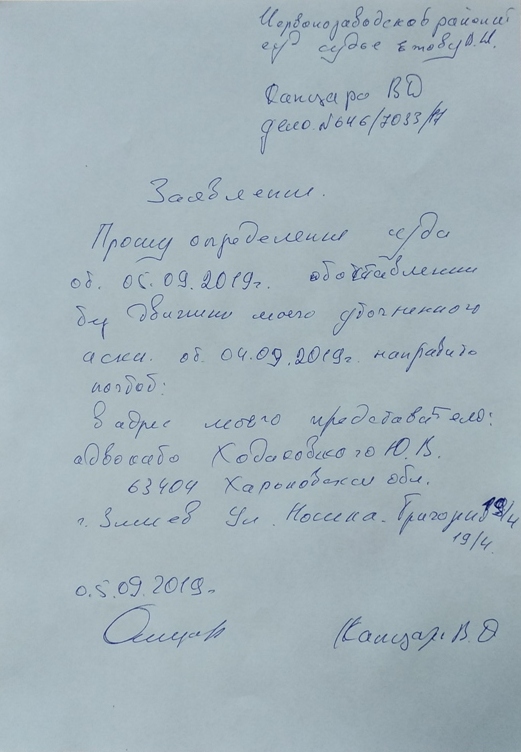 Червонозаводсков районий
суд судье
Канцара ВД
дело №646/7033/17
Заявление.
Прошу определение суда
от. 05.09.2019г.
движению моего уточненного
от. 04.09.2019г. направить
в адрес моего представителя:
адвоката Ходаковского Ю.В.
63404 Харковская обл.
г. Змиев Ул. Носика. Григория 19/4
19/4.
0.5.09.2019г.
(Канцара В.Д